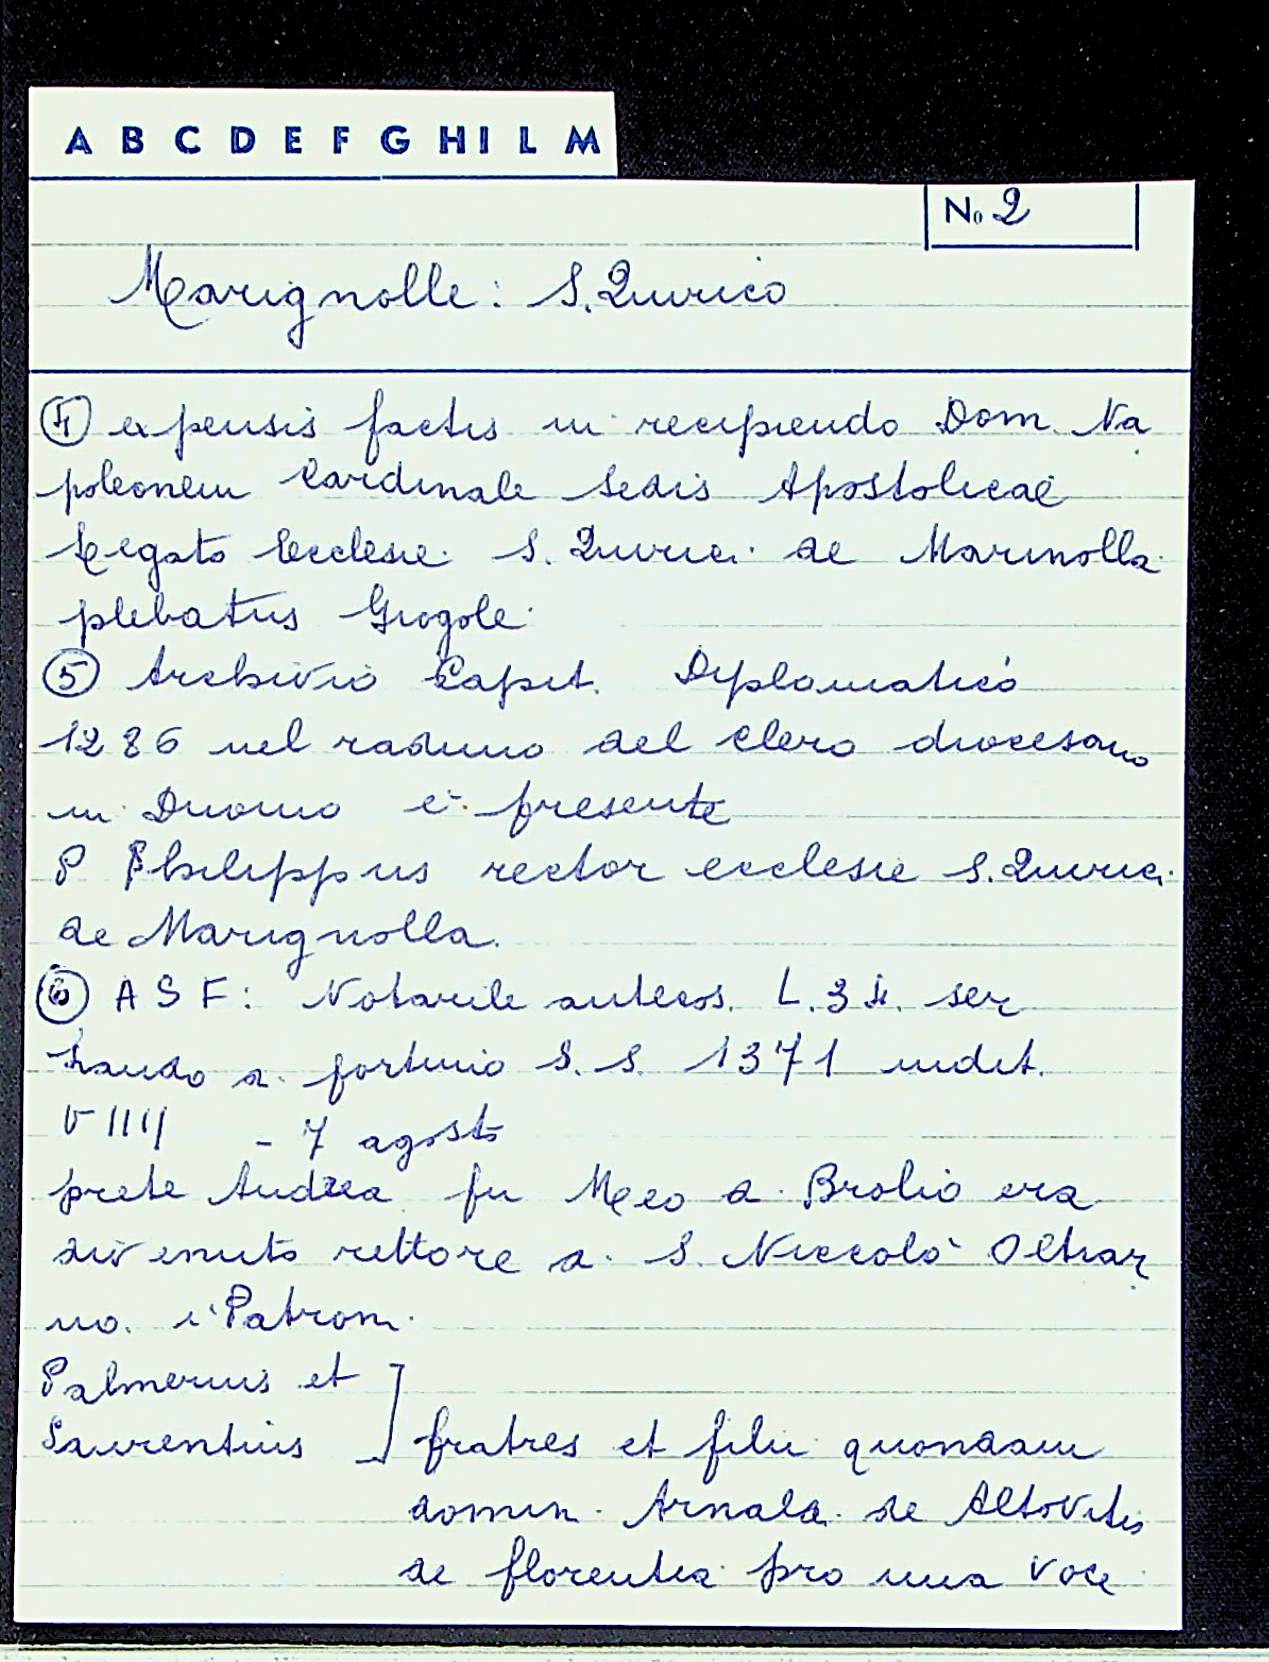 A B C D E F G H I L M
No 2
Marignolle: S. Quirico
④ expensis factis in recipiendo Dom. Na
poleonem Cardinale Sedis Apostolicae
Legato Ecclesie S. Quirici de Marinolla
plebatus Giogole
⑤ Archivio Capit. Diplomatico
1286 nel raduno del clero diocesano
in Duomo è presente
P Philippus rector ecclesie S. Quirici
de Marignolla.
⑥ A S F: Notarile antecos. L. 34. ser
Lando da fortunio S. S. 1371 indit.
VIIII - 7 agosto
prete Andrea fu Meo da Brolio era
divenuto rettore a S. Niccolò Oltrar
no. i Patroni
Palmerius et
Laurentius ] fratres et filii quondam
domin. Arnaldi de Altovitis
de florentia pro una voce